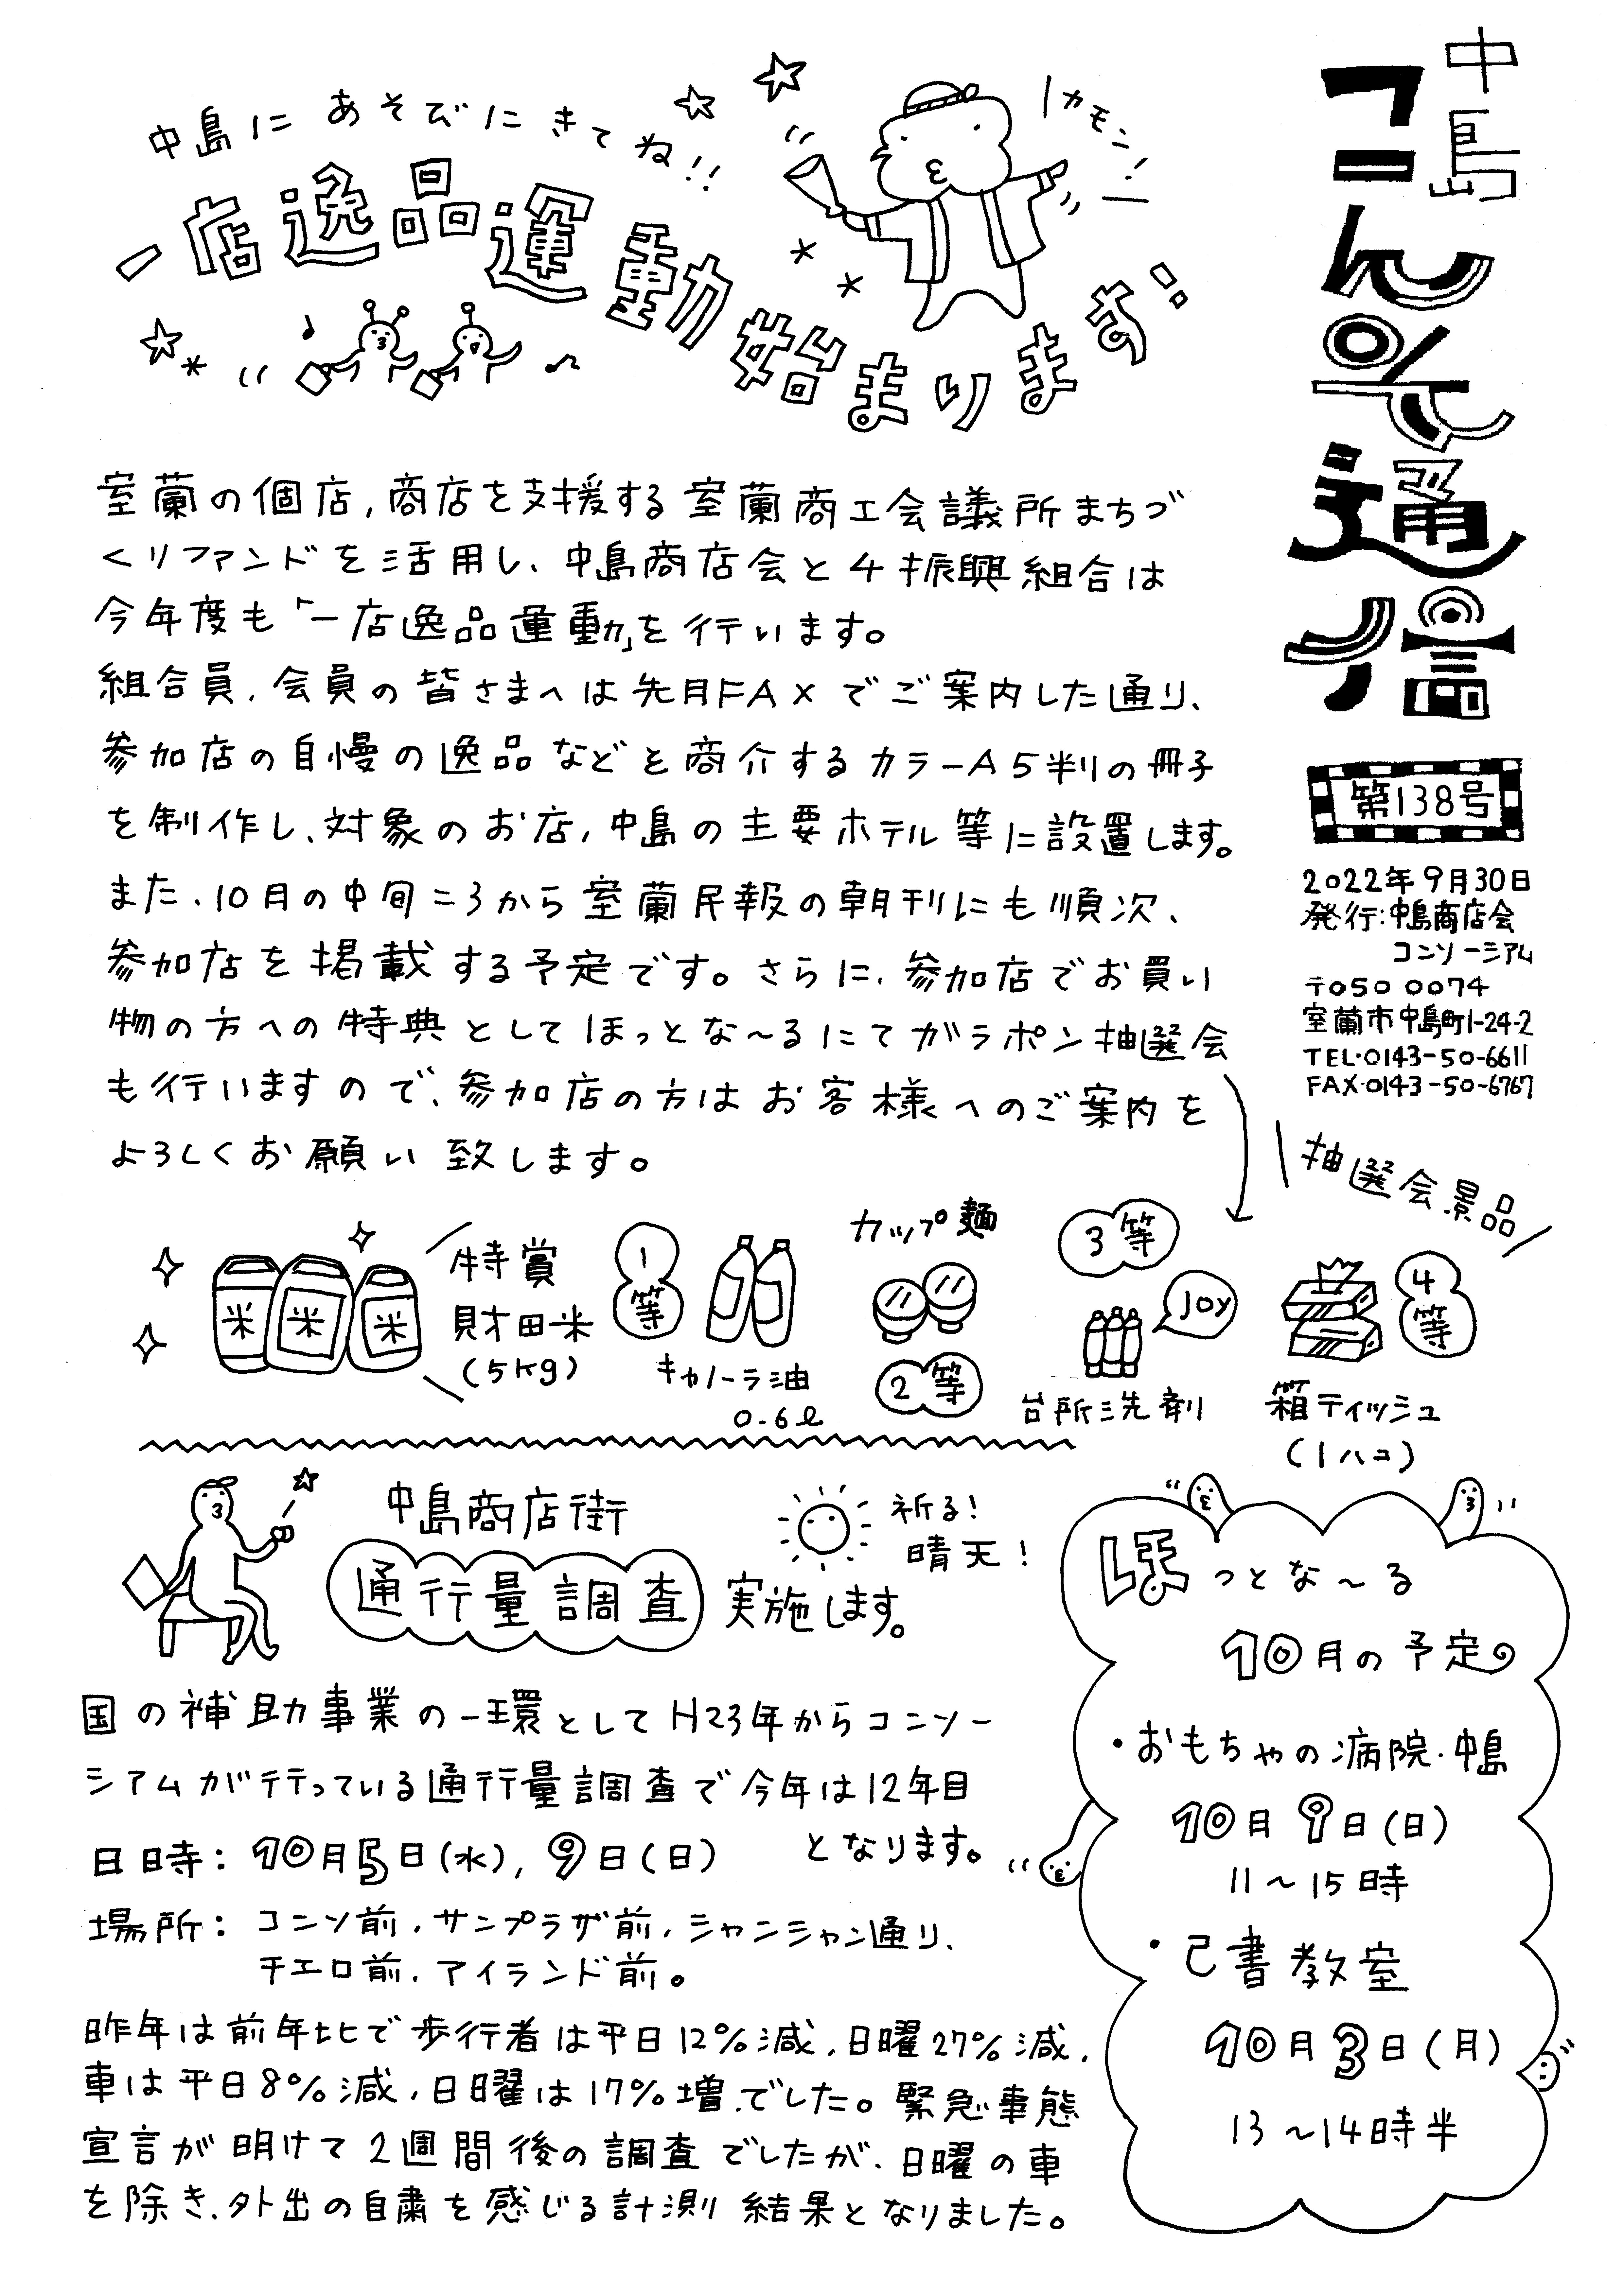 中島
コンソ通信
第138号
2022年9月30日
発行:中島商店会
コンソーシアム
〒050 0074
室蘭市中島町1-24-2
TEL・0143-50-6611
FAX・0143-50-6767
中島に あそびに きてね!!
カモン!
一店逸品運動始まります
室蘭の個店,商店を支援する室蘭商工会議所まちづ
くりファンドを活用し、中島商店会と4振興組合は
今年度も「一店逸品運動」を行います。
組合員,会員の皆さまへは先月FAXでご案内した通り、
参加店の自慢の逸品などを商介するカラーA5判の冊子
を制作し、対象のお店,中島の主要ホテル等に設置します。
また、10月の中旬ころから室蘭民報の朝刊にも順次、
参加店を掲載する予定です。さらに、参加店でお買い
物の方への特典としてほっとな〜るにてガラポン抽選会
も行いますので、参加店の方はお客様へのご案内を
よろしくお願い致します。
抽選会景品
米 米 米
特賞
財田米
(5kg)
1等
キャノーラ油
0.6ℓ
カップ麺
2等
3等
JOY
台所洗剤
4等
箱ティッシュ
(1ハコ)
中島商店街
通行量調査 実施します。
祈る!
晴天!
国の補助事業の一環としてH23年からコンソー
シアムが行っている通行量調査で今年は12年目
となります。
日時: 10月5日(水), 9日(日)
場所: コンソ前,サンプラザ前,シャンシャン通り、
チエロ前,アイランド前。
昨年は前年比で歩行者は平日12%減,日曜27%減,
車は平日8%減,日曜は17%増でした。緊急事態
宣言が明けて2週間後の調査でしたが、日曜の車
を除き、外出の自粛を感じる計測結果となりました。
ほっとな〜る
10月の予定
・おもちゃの病院・中島
10月9日(日)
11〜15時
・己書教室
10月3日(月)
13〜14時半